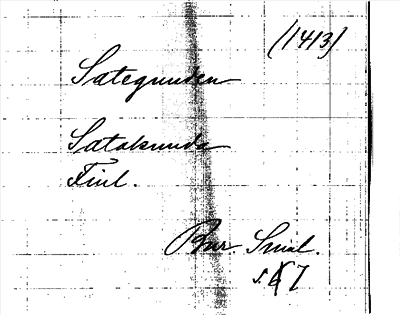 (1413)
Sategunden
Satakunda
Finl.
Bur. Smal.
s. 7